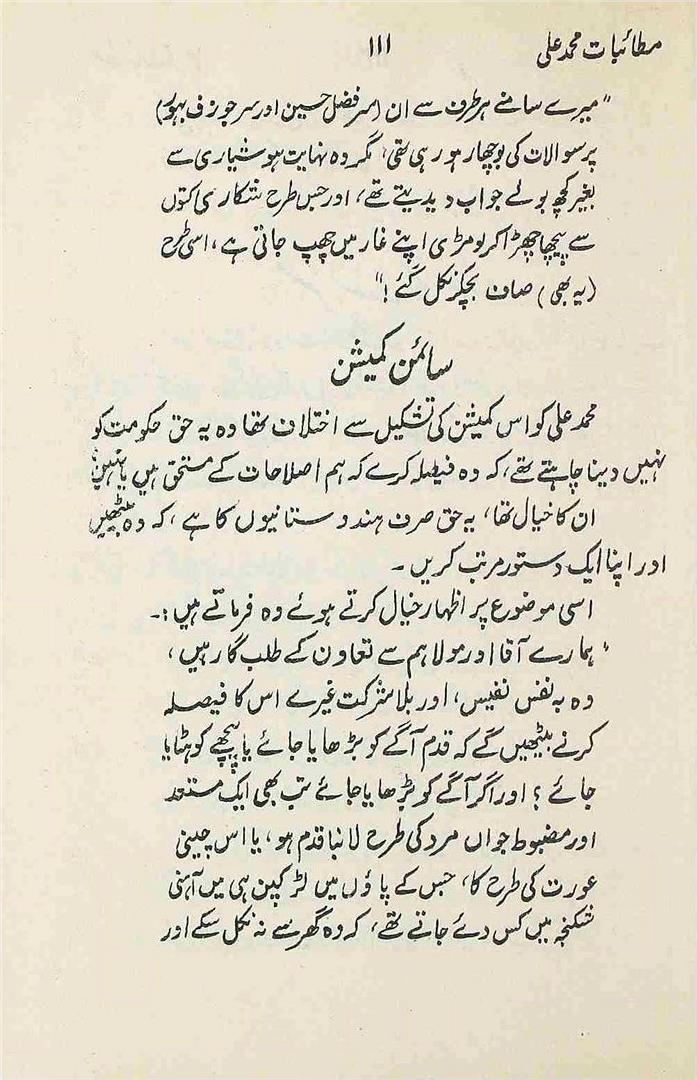 مطائبات محمد علی
۱۱۱
"میرے سامنے ہر طرف سے ان (سر فضل حسین اور سر جوزف بھور)
پر سوالات کی بوچھار ہو رہی تھی، مگر وہ نہایت ہوشیاری سے
بغیر کچھ بولے جواب دیدیتے تھے، اور جس طرح شکاری کتوں
سے پیچھا چھڑا کر لومڑی اپنے غار میں چھپ جاتی ہے، اسی طرح
(یہ بھی) صاف بچکر نکل گئے!"
سائمن کمیشن
محمد علی کو اس کمیشن کی تشکیل سے اختلاف تھا وہ یہ حق حکومت کو
نہیں دینا چاہتے تھے، کہ وہ فیصلہ کرے کہ ہم اصلاحات کے مستحق ہیں یا نہیں؟
ان کا خیال تھا، یہ حق صرف ہندوستانیوں کا ہے، کہ وہ بیٹھیں
اور اپنا ایک دستور مرتب کریں۔
اسی موضوع پر اظہار خیال کرتے ہوئے وہ فرماتے ہیں:۔
"ہمارے آقا اور مولا ہم سے تعاون کے طلب گار ہیں،
وہ بہ نفس نفیس، اور بلا شرکت غیرے اس کا فیصلہ
کرنے بیٹھیں گے کہ قدم آگے کو بڑھایا جائے یا پیچھے کو ہٹایا
جائے؟ اور اگر آگے کو بڑھایا جائے تب بھی ایک مستعد
اور مضبوط جواں مرد کی طرح لانبا قدم ہو، یا اس چینی
عورت کی طرح کا، جس کے پاؤں میں لڑکپن ہی میں آہنی
شکنجہ میں کس دئے جاتے تھے، کہ وہ گھر سے نہ نکل سکے اور